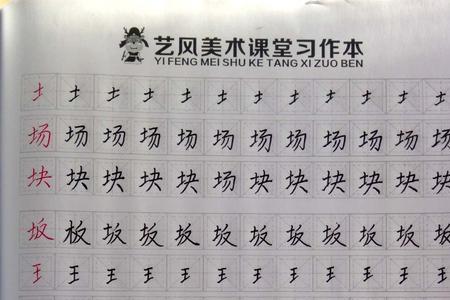 艺风美术课堂习作本
YI FENG MEI SHU KE TANG XI ZUO BEN
土土土土土土土土土土土土
场场场场场场场场场场场场
块块块块块场块块块块块块
坂板坂坂坂坂坂坂坂坂坂坂
王王王王王王王王王王王王